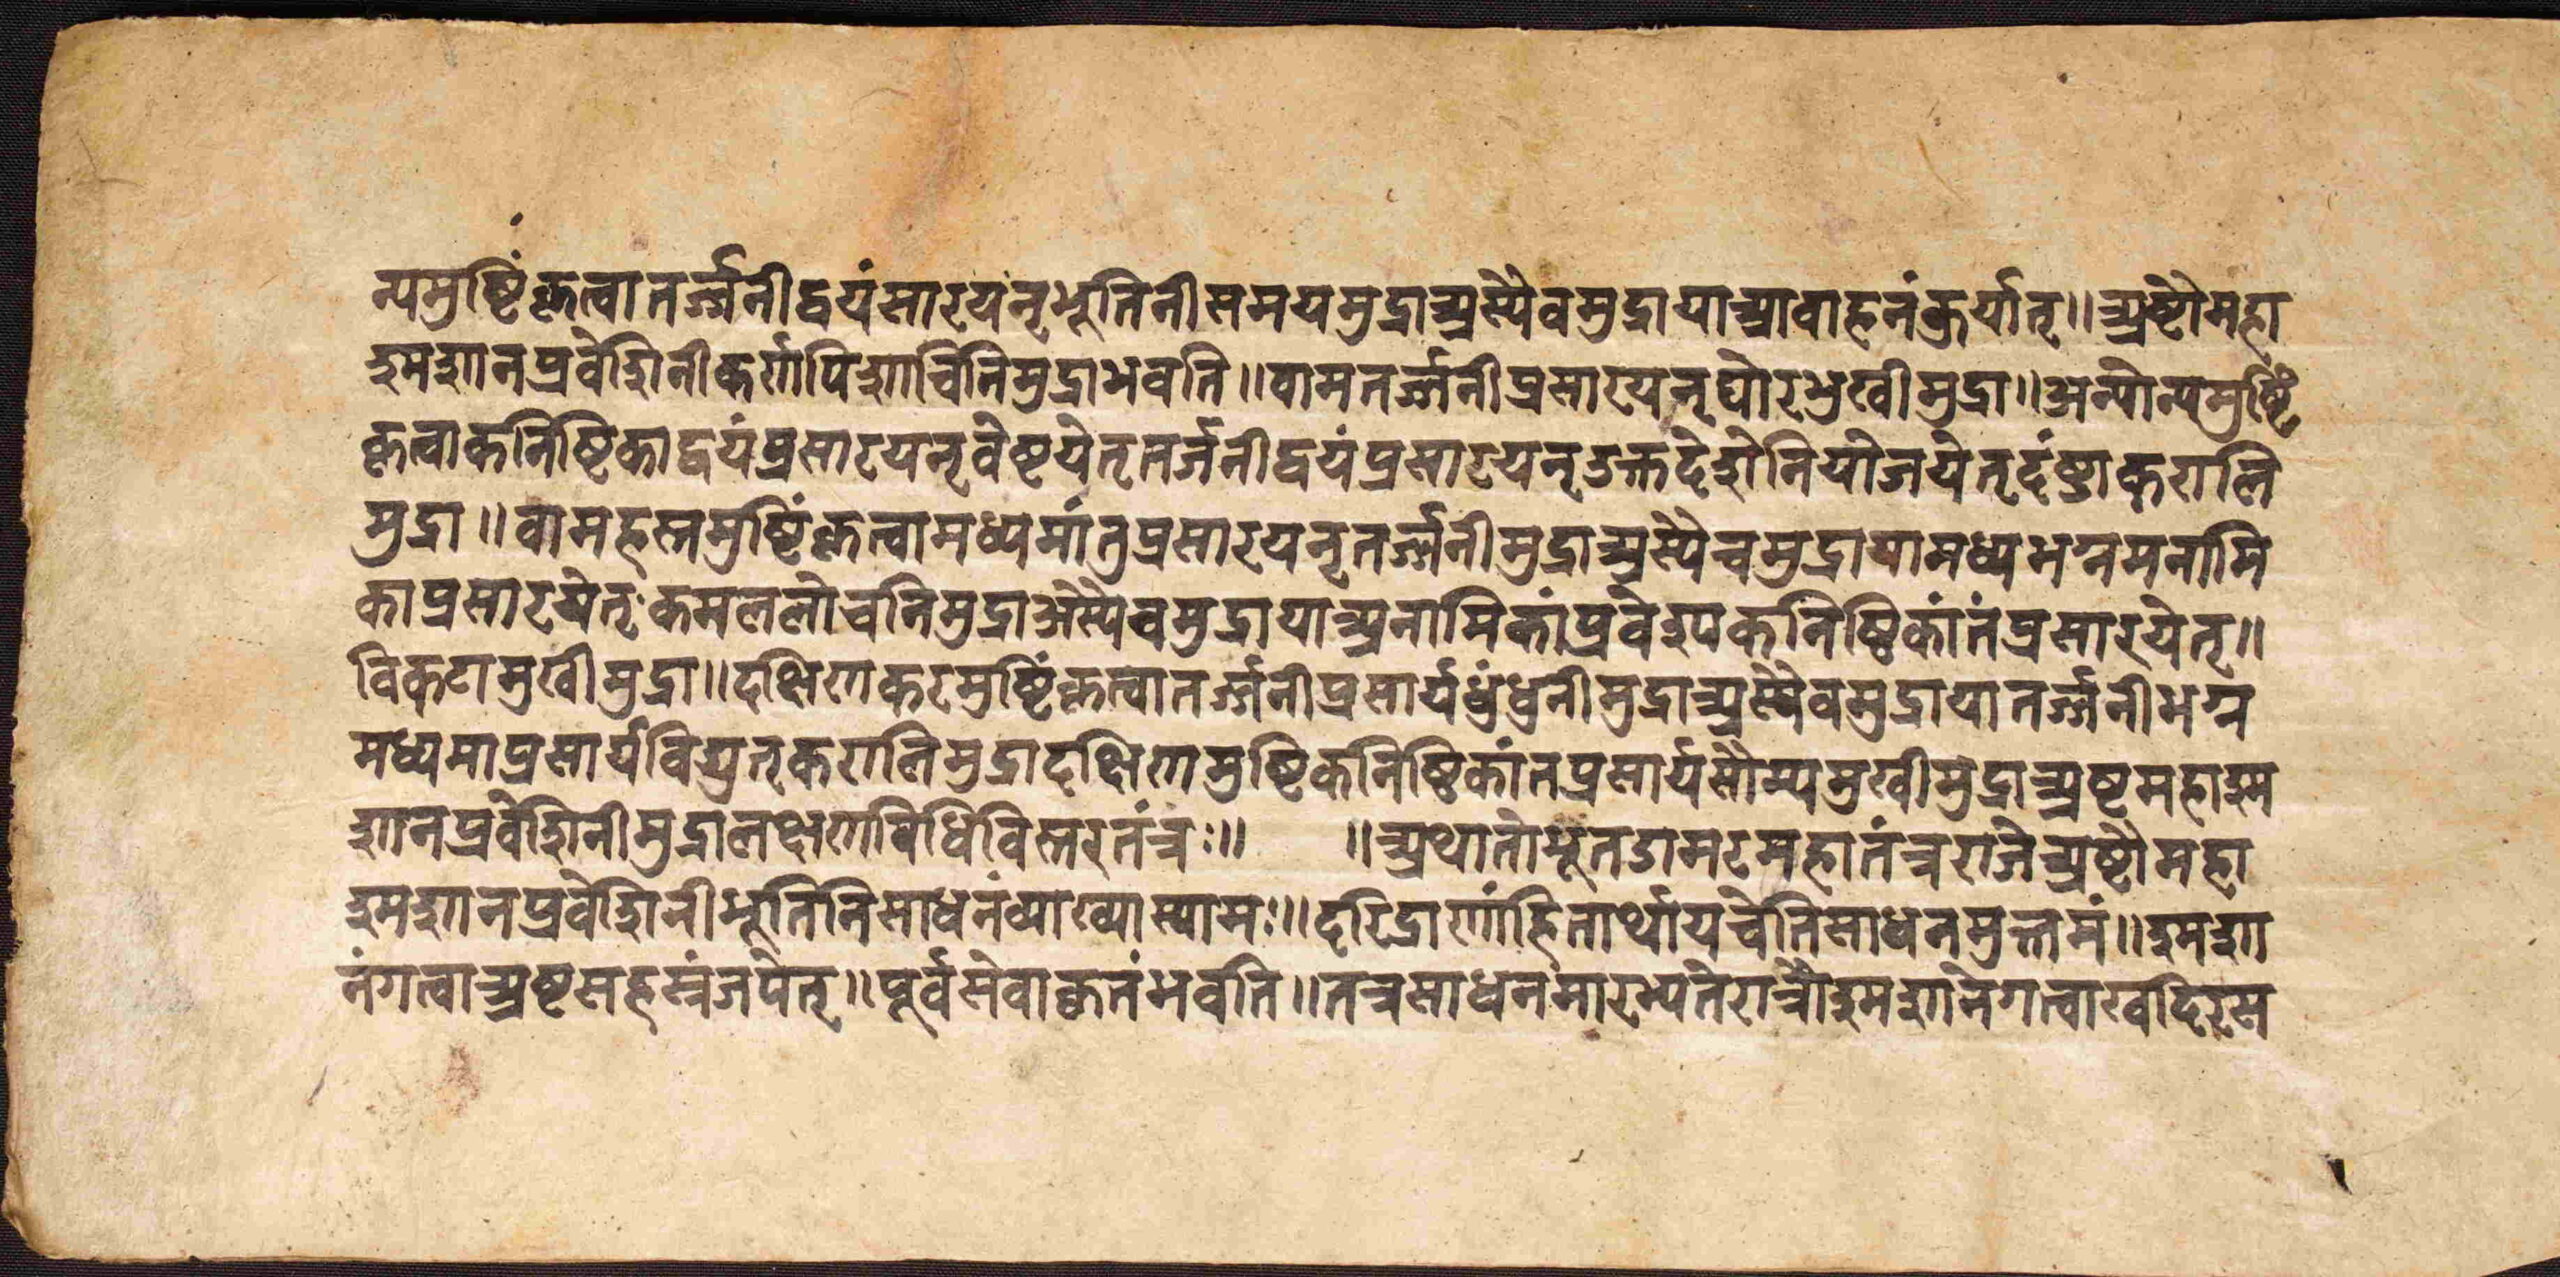 न्यमुष्टिंकृत्वातर्ज्जनीद्वयंसारयन्भूतिनीसमयमुद्राअस्यैवमुद्रायाआवाहनंकुर्यात्॥अष्टौमहा
श्मशानप्रवेशिनीकर्णापिशाचिनिमुद्राभवति॥वामतर्ज्जनीप्रसारयन्घोरमुखीमुद्रा॥अन्योन्यमुष्टिं
कृत्वाकनिष्टिकाद्वयंप्रसारयन्वेष्टयेत्तर्जनीद्वयंप्रसारयन्उक्तदेशेनियोजयेत्दंष्ट्राकरालि
मुद्रा॥वामहस्तमुष्टिंकृत्वामध्यमांतुप्रसारयन्तर्ज्जनीमुद्राअस्यैवमुद्रायामध्यभग्नमनामि
काप्रसारयेत्कमललोचनिमुद्राअस्यैवमुद्रायाअनामिकांप्रवेश्यकनिष्ठिकांतंप्रसारयेत्॥
विकटामुखीमुद्रा॥दक्षिणकरमुष्टिंकृत्वातर्ज्जनीप्रसार्यधुंधुनीमुद्राअस्यैवमुद्रायातर्ज्जनीभग्न
मध्यमाप्रसार्यविद्युत्करालिमुद्रादक्षिणमुष्टिकनिष्ठिकांतप्रसार्यसौम्यमुखीमुद्राअष्टमहाश्म
शानप्रवेशिनीमुद्रालक्षणविधिविस्तरतंत्रः॥ ॥अथातोभूतडामरमहातंत्रराजेअष्टौमहा
श्मशानप्रवेशिनीभूतिनिसाधनंव्याख्योस्यामः॥दरिद्राणांहितार्थायचेतिसाधनमुत्तमं॥श्मशा
नंगत्वाअष्टसहस्रंजपेत्॥पूर्वसेवाकृतंभवति॥तत्रसाधनमारभ्यतेरात्रौश्मशानेगत्वाखदिरस